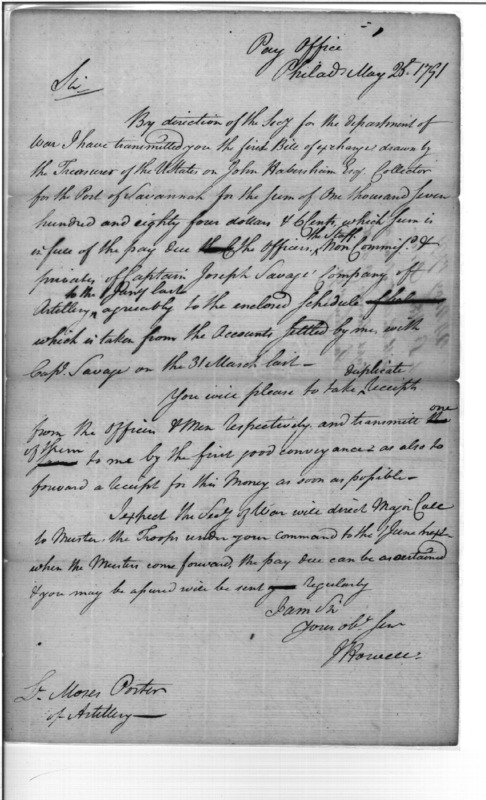 Pay Office
Philad.ᵃ May 28. 1791
Sir
By direction of the Secy for the department of
War I have transmitted you the first Bill of exchange drawn by
the Treasurer of the UStates on John Habersham Esq Collector
for the Port of Savannah for the sum of One thousand seven
hundred and eighty four dollars & 6 Cents, which sum is
in full of the pay due the Officers, The Staff, Non Commis.ᵈ &
privates of Captain Joseph Savage's Company of
to the 1 Jan'y last
Artillery, agreeably to the enclosed Schedule
which is taken from the Accounts settled by me, with
Capt. Savage on the 31 March last –
duplicate
You will please to take Receipts
from the Officers & Men respectively and transmitt one
of them to me by the first good conveyance & as also to
forward a receipt for this Money as soon as possible –
I expect the Secy of War will direct Major Call
to Muster the Troops under your command to the 1 June next
when the Musters come forward, the pay due can be ascertained
& you may be assured will be sent regularly
I am Sir
Your obt Serv
J Howell
Lt Moses Porter
of Artillery